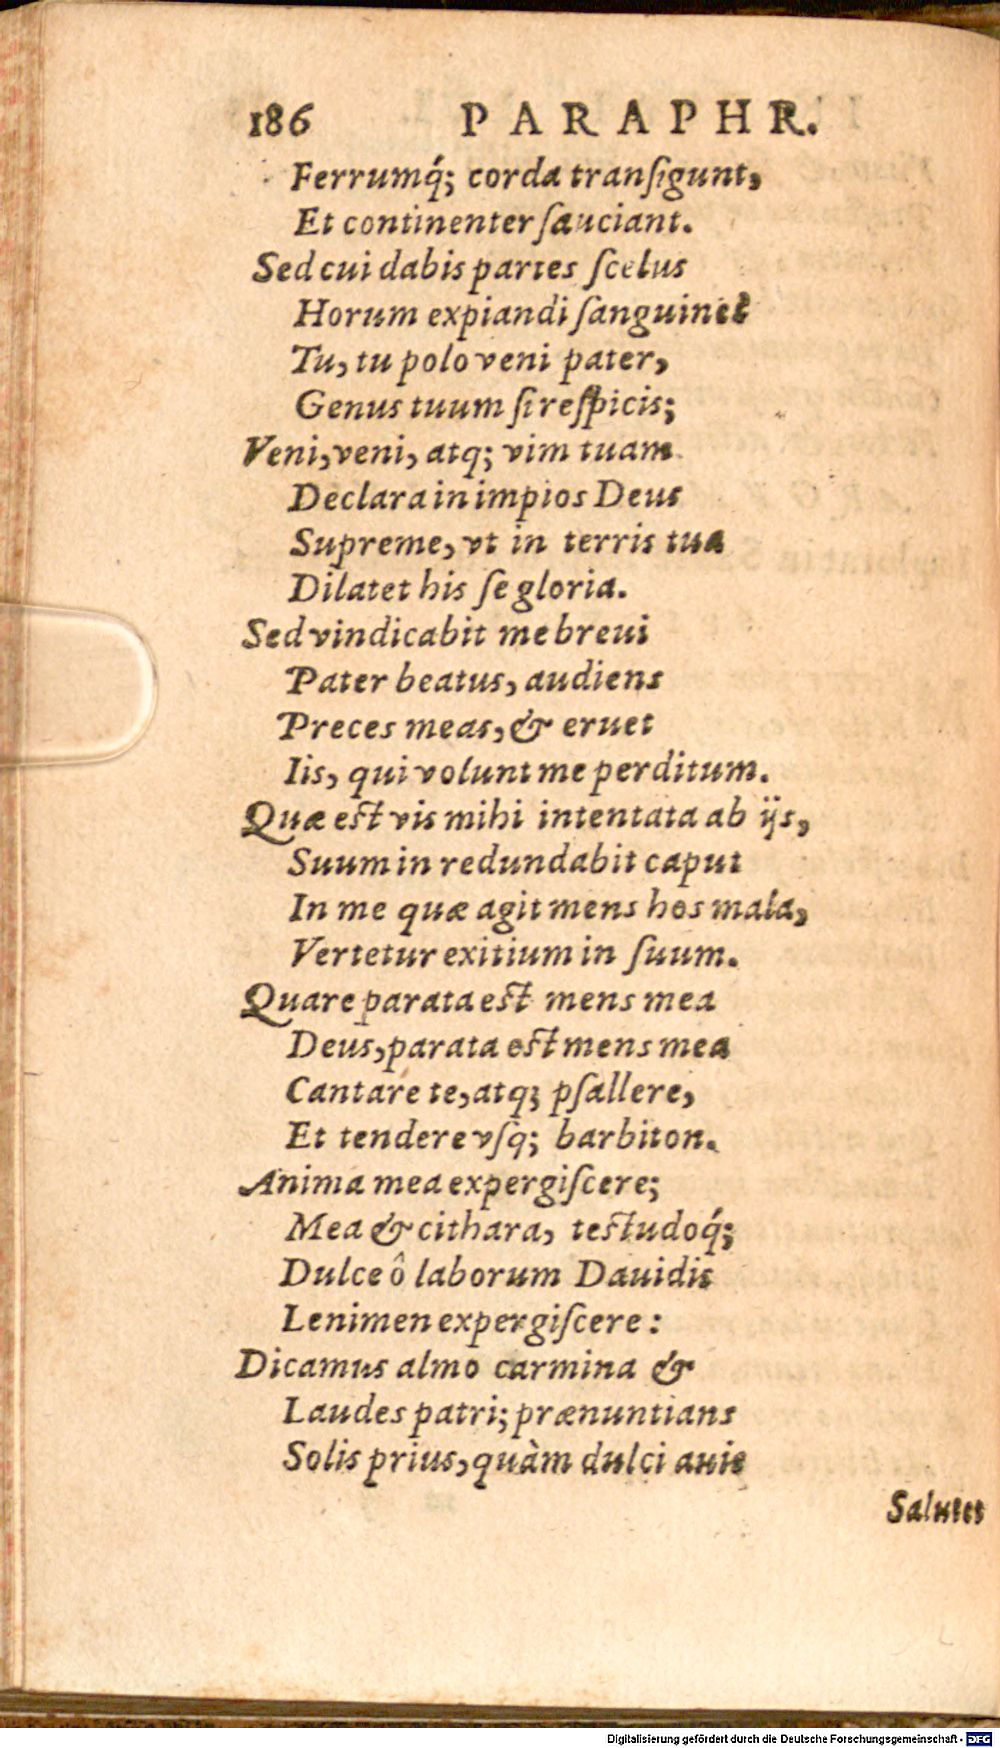 186 PARAPHR.
Ferrumq́; corda tranſigunt,
Et continenter ſauciant.
Sed cui dabis partes ſcelus
Horum expiandi ſanguine?
Tu, tu polo veni pater,
Genus tuum ſi reſpicis;
Veni, veni, atq; vim tuam
Declara in impios Deus
Supreme, vt in terris tua
Dilatet his ſe gloria.
Sed vindicabit me breui
Pater beatus, audiens
Preces meas, & eruet
Iis, qui volunt me perditum.
Quæ est vis mihi intentata ab ijs,
Suum in redundabit caput
In me quæ agit mens hos mala,
Vertetur exitium in ſuum.
Quare parata est mens mea
Deus, parata est mens mea
Cantare te, atq; pſallere,
Et tendere vſq; barbiton.
Anima mea expergiſcere;
Mea & cithara, testudoq́;
Dulce ô laborum Dauidis
Lenimen expergiſcere:
Dicamus almo carmina &
Laudes patri; prænuntians
Solis prius, quàm dulci auis
Salutet
Digitalisierung gefördert durch die Deutsche Forschungsgemeinschaft - DFG